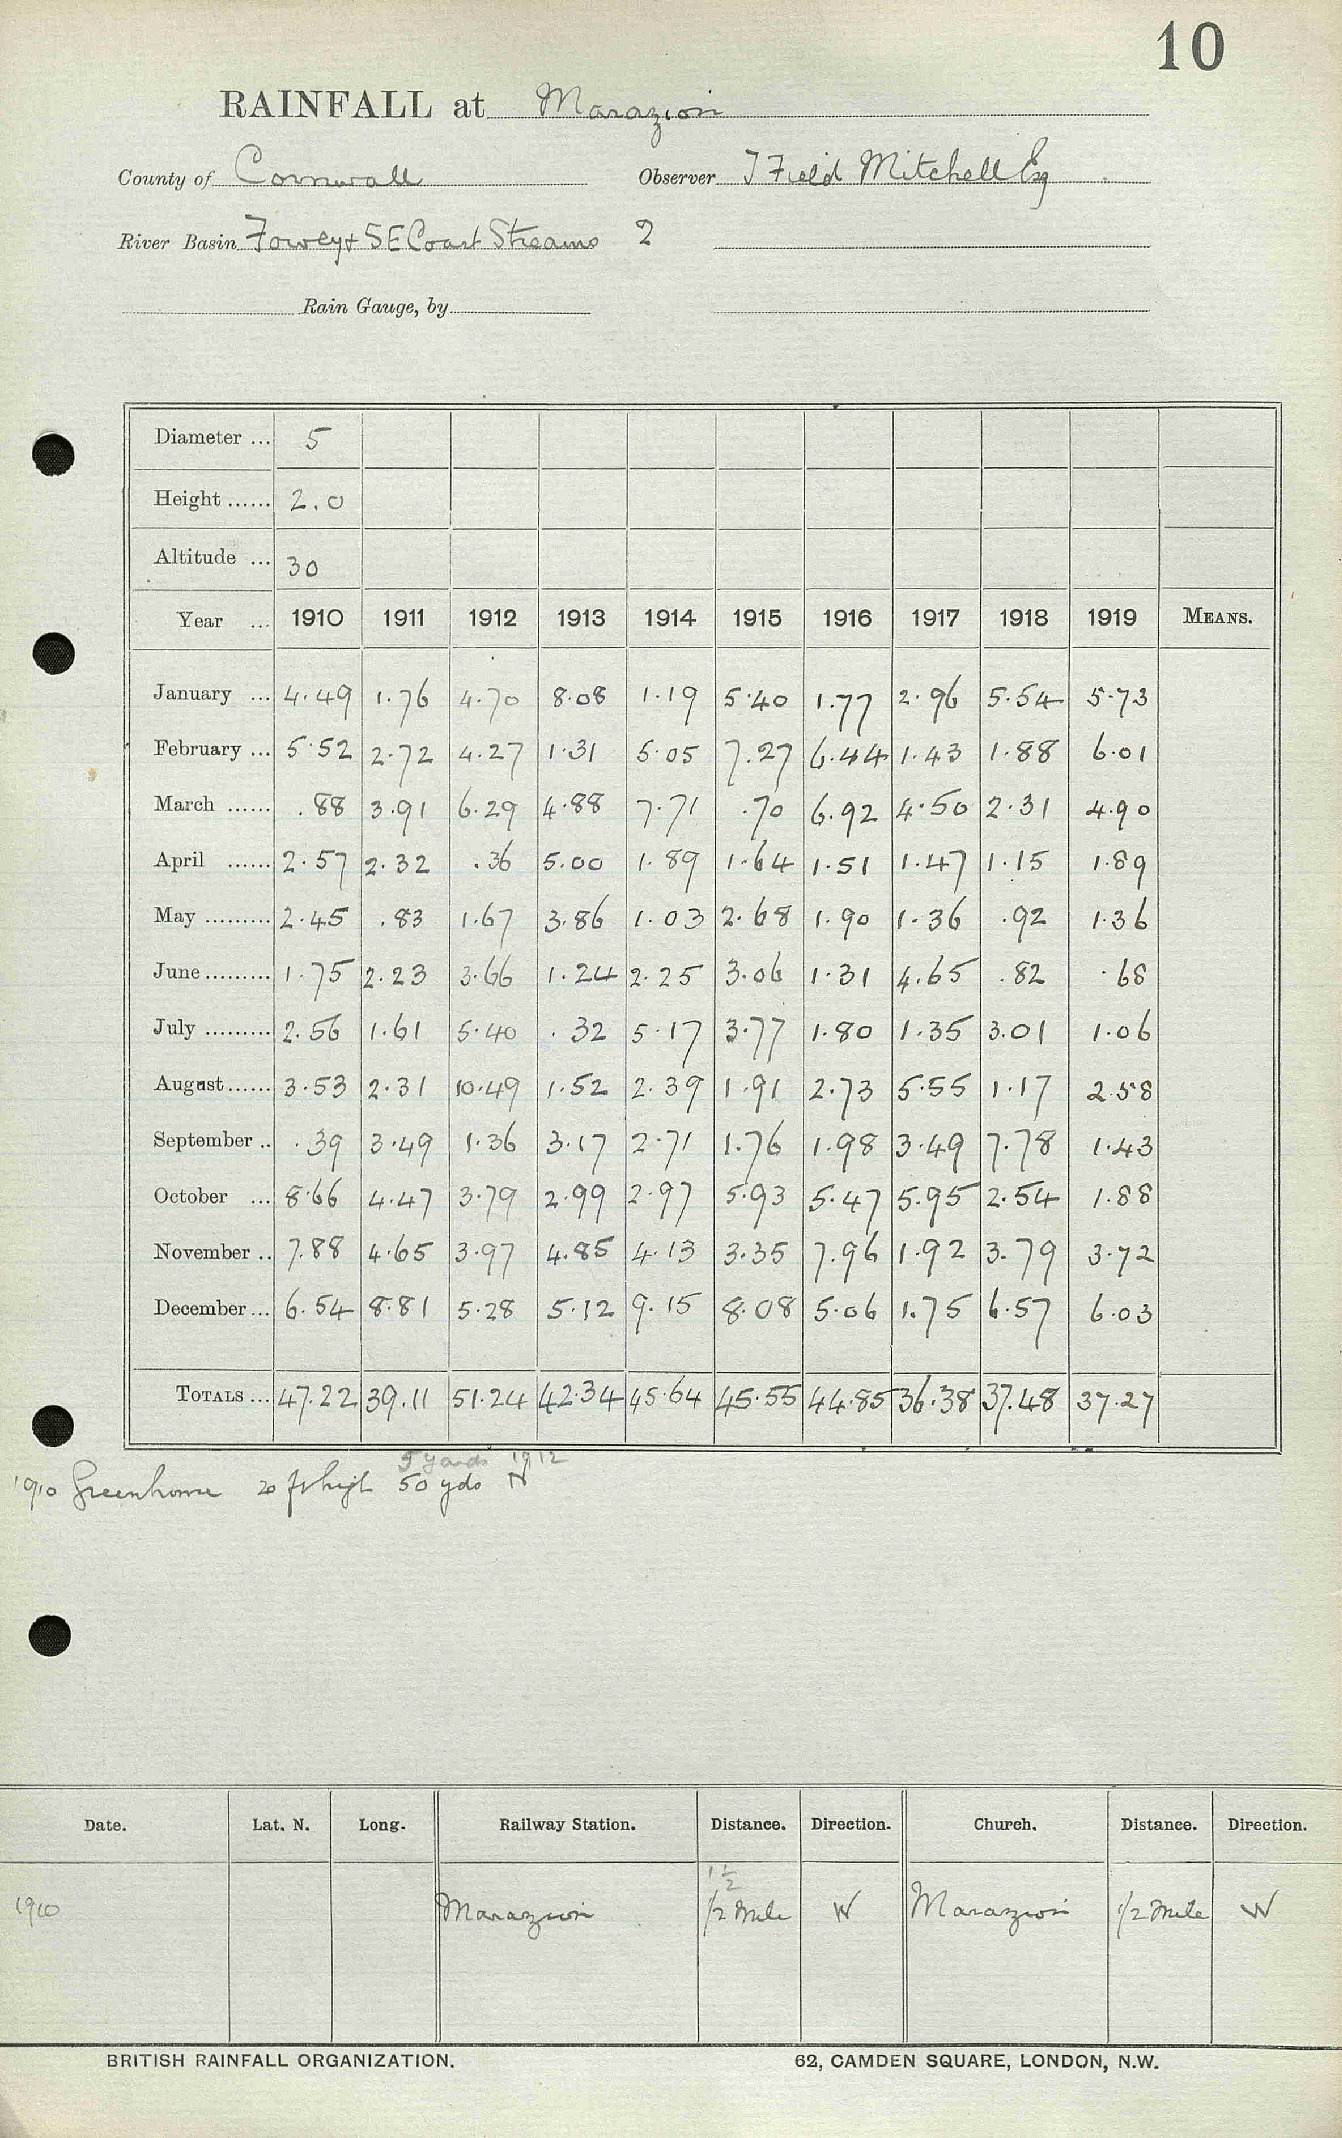 10
RAINFALL at Marazion
County of Cornwall Observer J Field Mitchell Esq
River Basin Fowey + SE Coast Streams 2
Rain Gauge, by
Diameter ... 5
Height ...... 2.0
Altitude ... 30
Year ... 1910 1911 1912 1913 1914 1915 1916 1917 1918 1919 MEANS.
January ... 4.49 1.76 4.70 8.08 1.19 5.40 1.77 2.96 5.54 5.73
February ... 5.52 2.72 4.27 1.31 5.05 7.27 6.44 1.43 1.88 6.01
March ...... .88 3.91 6.29 4.88 7.71 .70 6.92 4.50 2.31 4.90
April ...... 2.57 2.32 .36 5.00 1.89 1.64 1.51 1.47 1.15 1.89
May ......... 2.45 .83 1.67 3.86 1.03 2.68 1.90 1.36 .92 1.36
June ......... 1.75 2.23 3.66 1.24 2.25 3.06 1.31 4.65 .82 .68
July ......... 2.56 1.61 5.40 .32 5.17 3.77 1.80 1.35 3.01 1.06
August ...... 3.53 2.31 10.49 1.52 2.39 1.91 2.73 5.55 1.17 2.58
September .. .39 3.49 1.36 3.17 2.71 1.76 1.98 3.49 7.78 1.43
October ... 8.66 4.47 3.79 2.99 2.97 5.93 5.47 5.95 2.54 1.88
November .. 7.88 4.65 3.97 4.85 4.13 3.35 7.96 1.92 3.79 3.72
December ... 6.54 8.81 5.28 5.12 9.15 8.08 5.06 1.75 6.57 6.03
TOTALS ... 47.22 39.11 51.24 42.34 45.64 45.55 44.85 36.38 37.48 37.27
5 yards 1912
1910 Greenhouse 20 ft high 50 yds N
Date. Lat. N. Long. Railway Station. Distance. Direction. Church. Distance. Direction.
1 1/2
1910 Marazion 1/2 Mile W Marazion 1/2 Mile W
BRITISH RAINFALL ORGANIZATION. 62, CAMDEN SQUARE, LONDON, N.W.